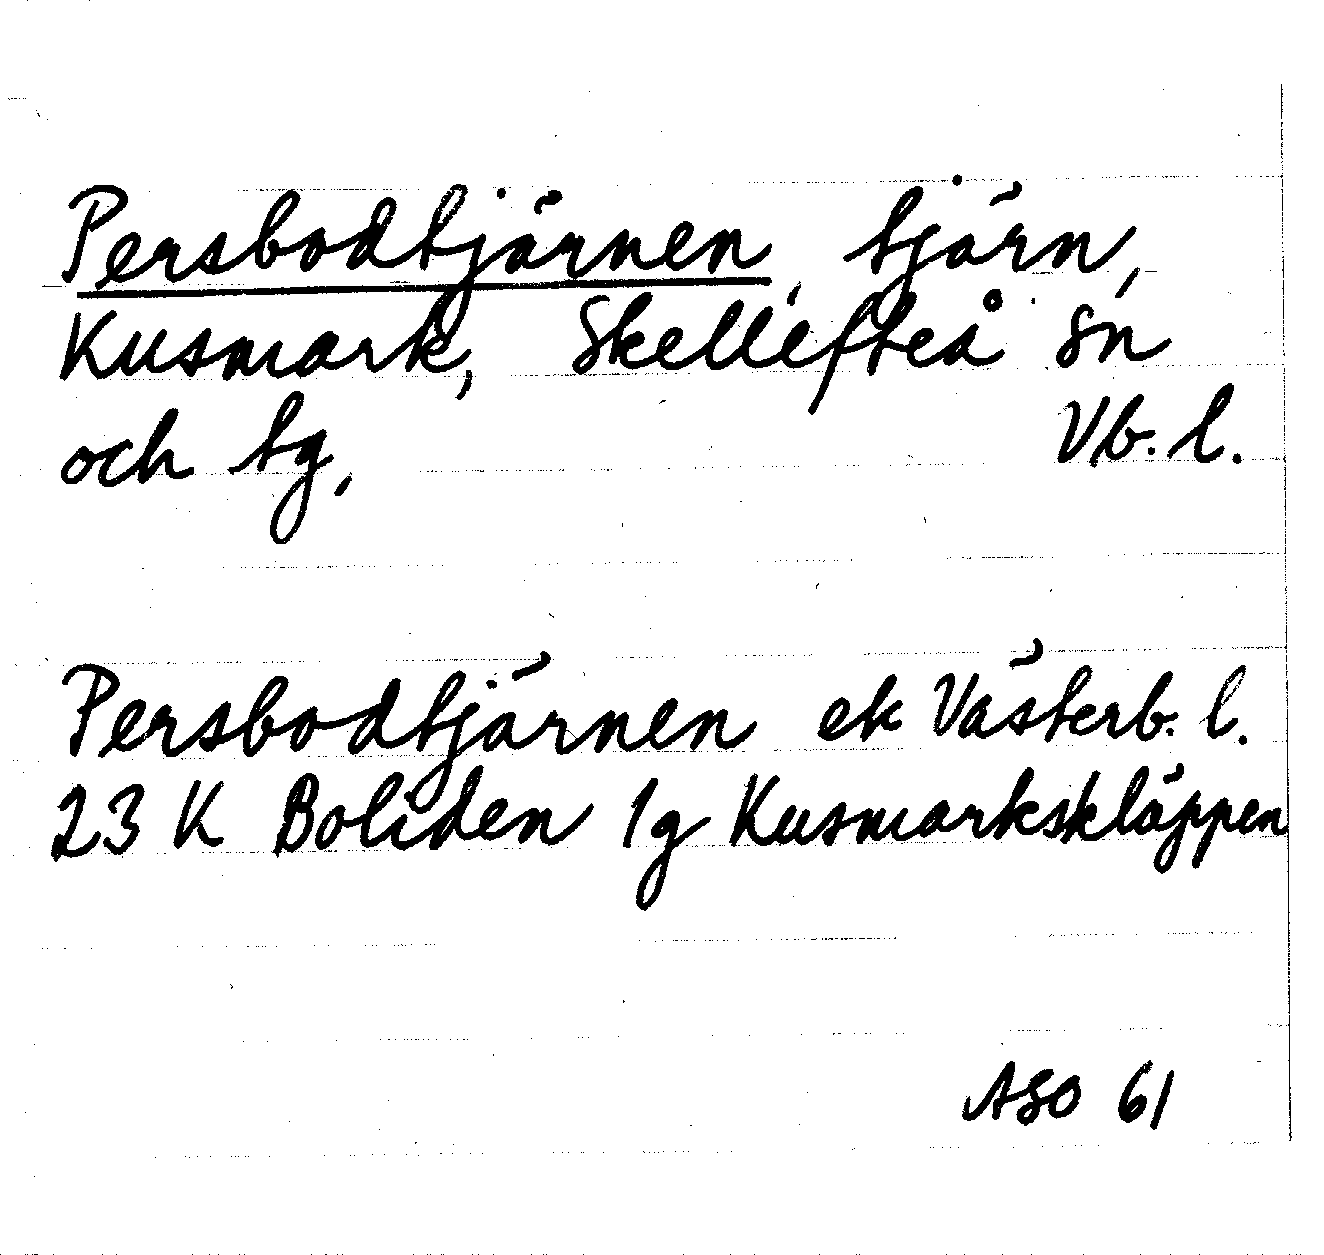 Persbodtjärnen, tjärn,
Kusmark, Skellefteå sn
och tg, Vb. l.
Persbodtjärnen ek Västerb. l.
23 K Boliden 1g Kusmarkskläppen
ASO 61